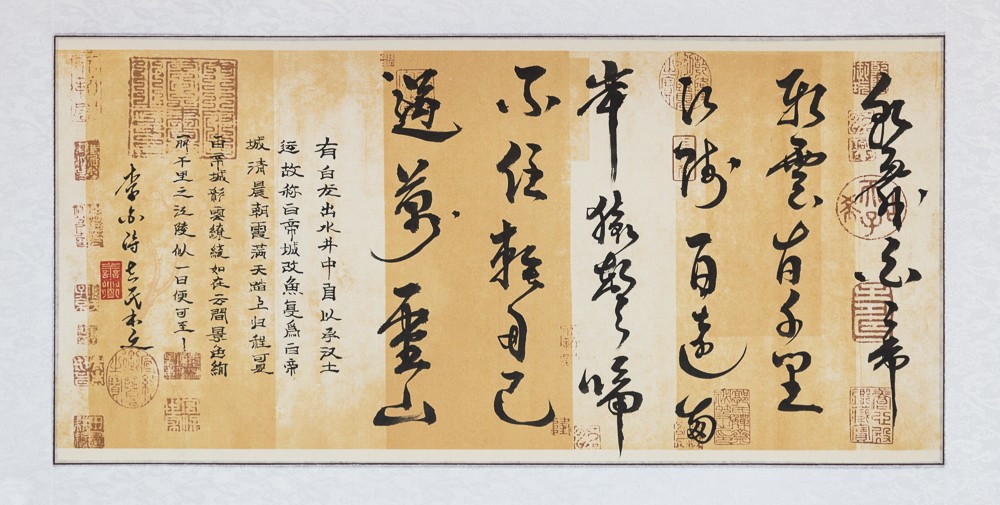 朝辭白帝
彩雲间千里
江陵一日還兩
岸猿聲啼
不住輕舟已
過萬重山
有白龙出水井中自以承汉土
运故称白帝城改魚复爲白帝
城清晨朝霞满天踏上归程可
白帝城彩雲繚绕如在云間景色绚
丽千里之江陵似一日便可至
李白诗